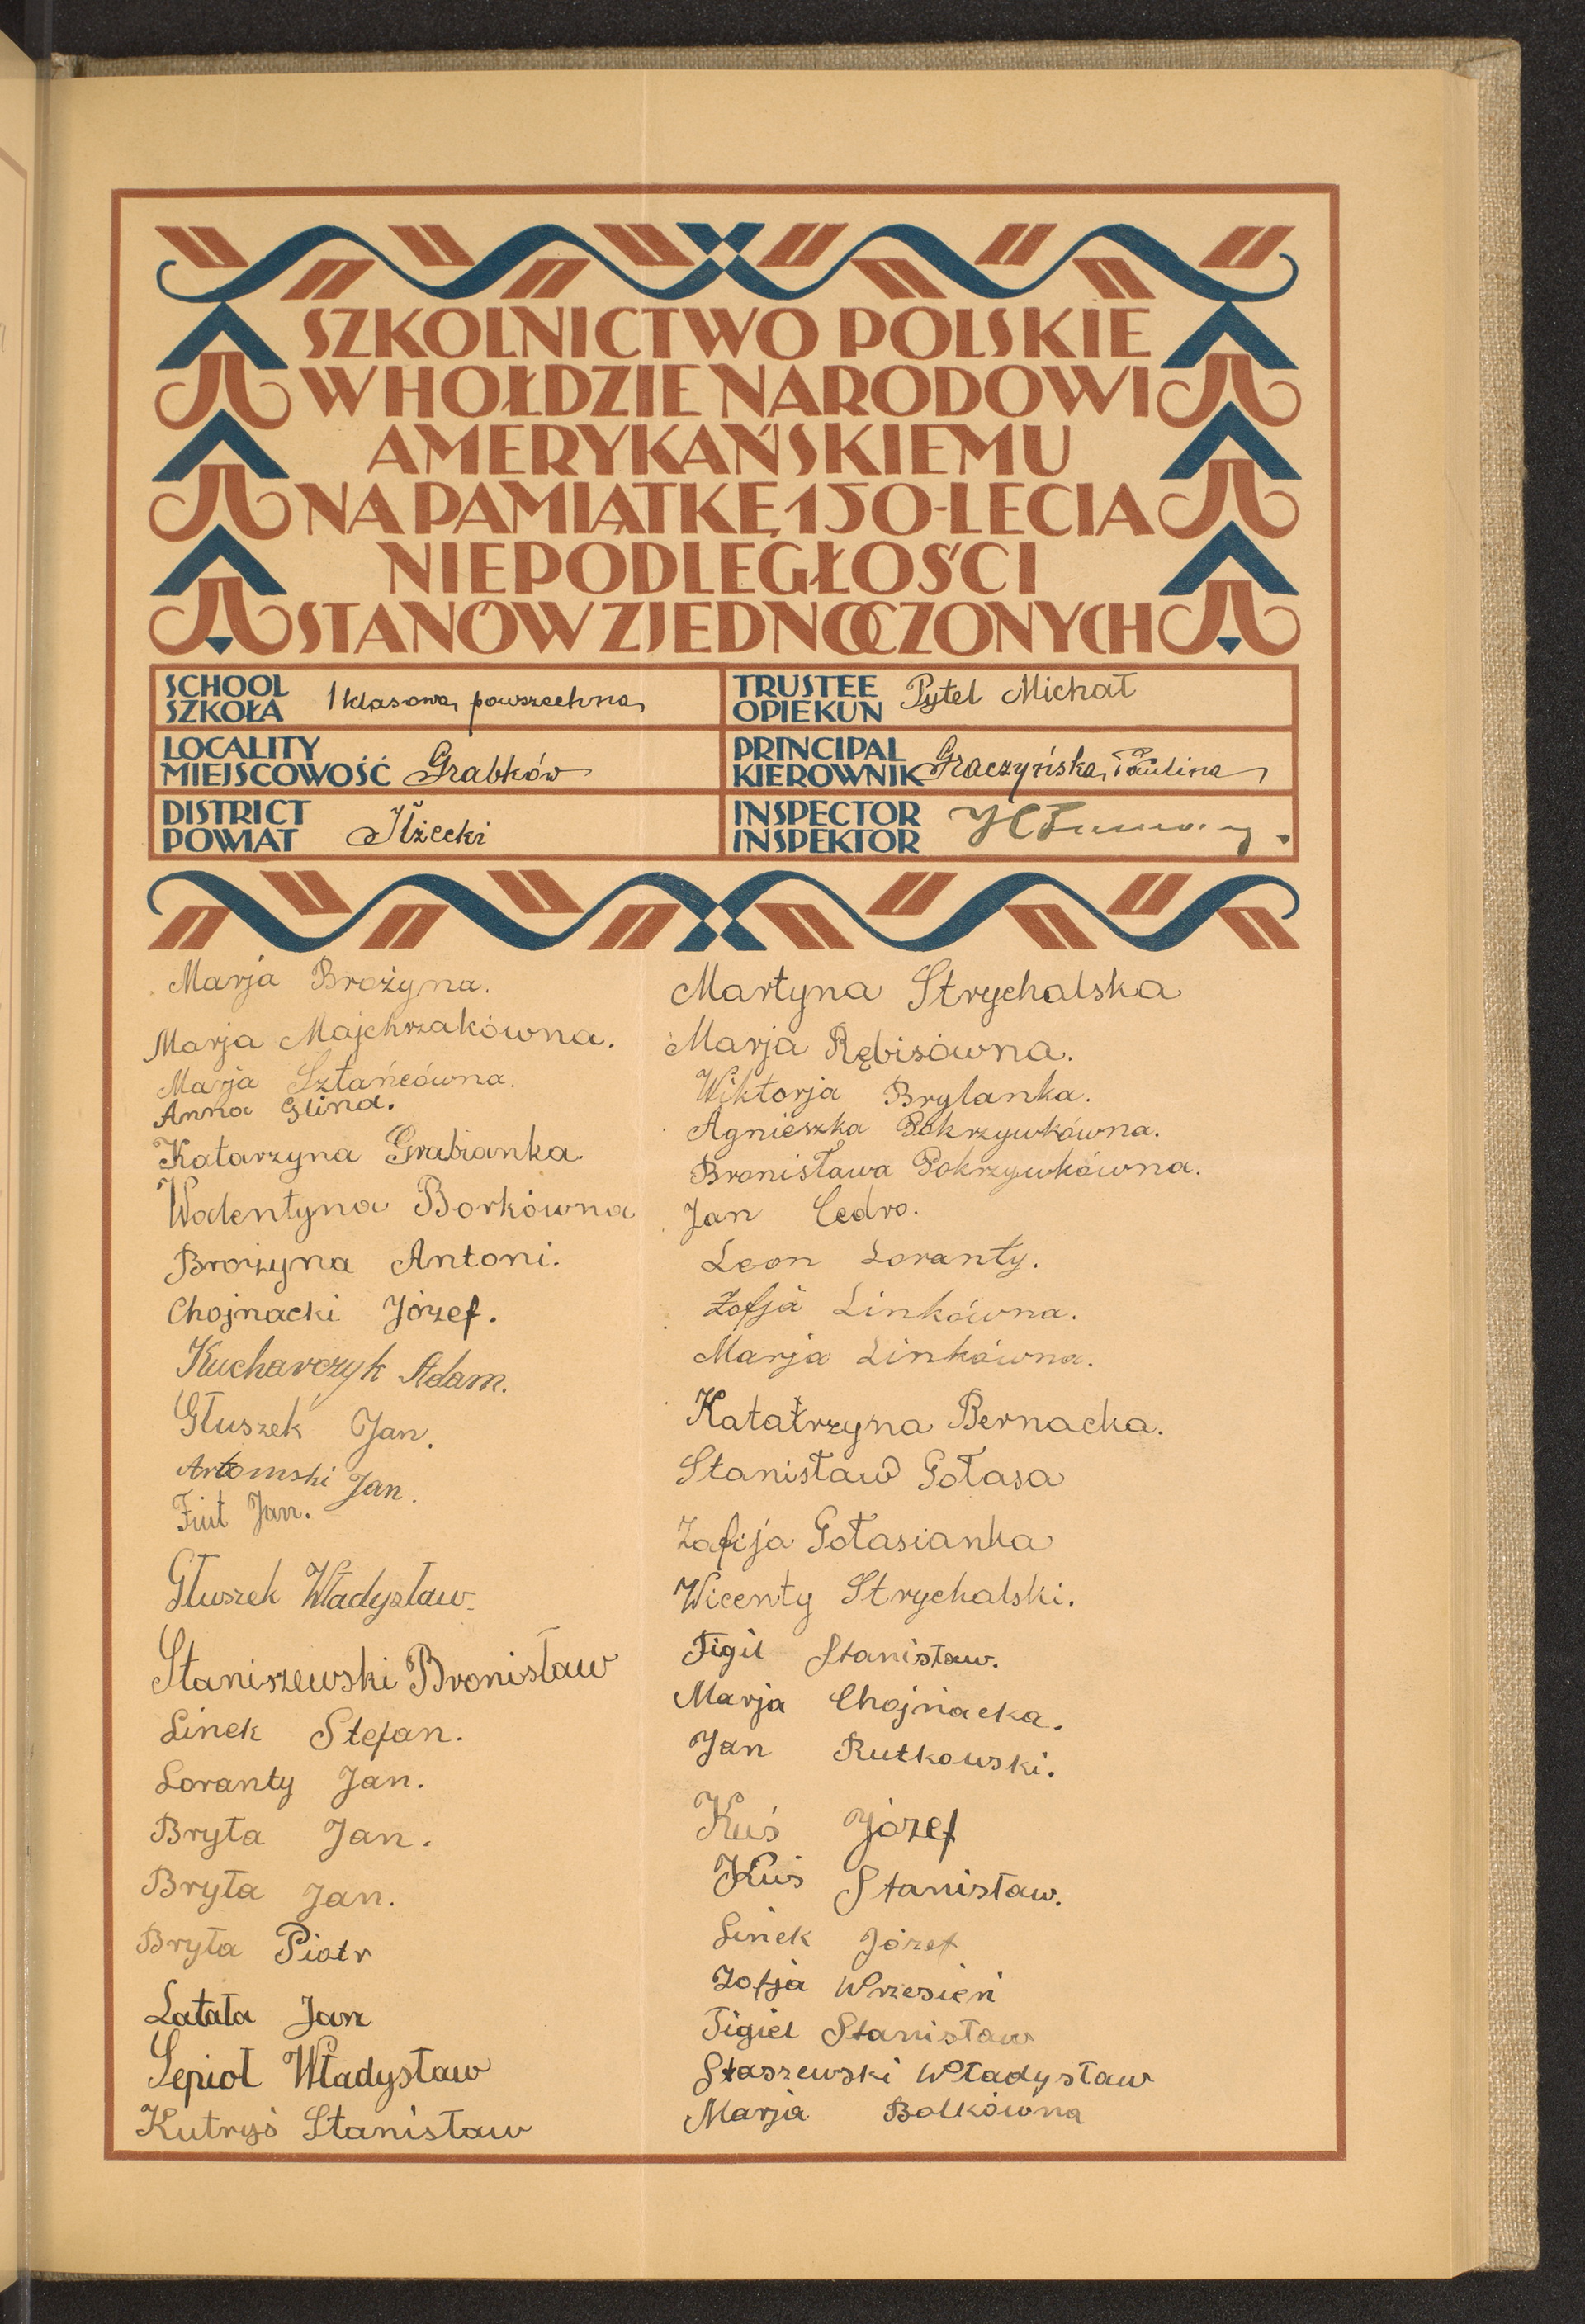 SZKOLNICTWO POLSKIE
W HOŁDZIE NARODOWI
AMERYKAŃSKIEMU
NA PAMIĄTKĘ 150-LECIA
NIEPODLEGŁOŚCI
STANÓW ZJEDNOCZONYCH
SCHOOL
SZKOŁA
1 klasowa powszechna
TRUSTEE
OPIEKUN
Pytel Michał
LOCALITY
MIEJSCOWOŚĆ
Grabków
PRINCIPAL
KIEROWNIK
Graczyńska Paulina
DISTRICT
POWIAT
Iłżecki
INSPECTOR
INSPEKTOR
Marja Brożyna.
Marja Majchrzakówna.
Marja Sztańcówna.
Anna Glind.
Katarzyna Grabianka
Wodentyna Borkówna
Brożyna Antoni.
Chojnacki Józef.
Kucharczyk Adam.
Głuszek Jan.
Artomski Jan.
Fiut Jan.
Głuszek Władyzław.
Staniszewski Bronisław
Linek Stefan.
Loranty Jan.
Bryła Jan.
Bryła Jan.
Bryła Piotr
Latała Jan
Lepioł Władysław
Kutryś Stanisław
Martyna Strychalska
Marja Rębisówna.
Wiktorja Brylanka.
Agnieszka Pokrzywkówna.
Bronisława Pokrzywkówna.
Jan Cedro.
Leon Loranty.
Zofja Linkówna.
Marja Linkówna.
Katatrzyna Bernacka.
Stanisław Gołasa
Zofija Gołasianka
Wicenty Strychalski.
Figil Stanisław.
Marja Chojnacka.
Jan Rutkowski.
Kuś Józef
Kuś Stanisław.
Linek Józef
Zofja Wrzesień
Figiel Stanisław
Staszewski Władysław
Marja Bolkówna